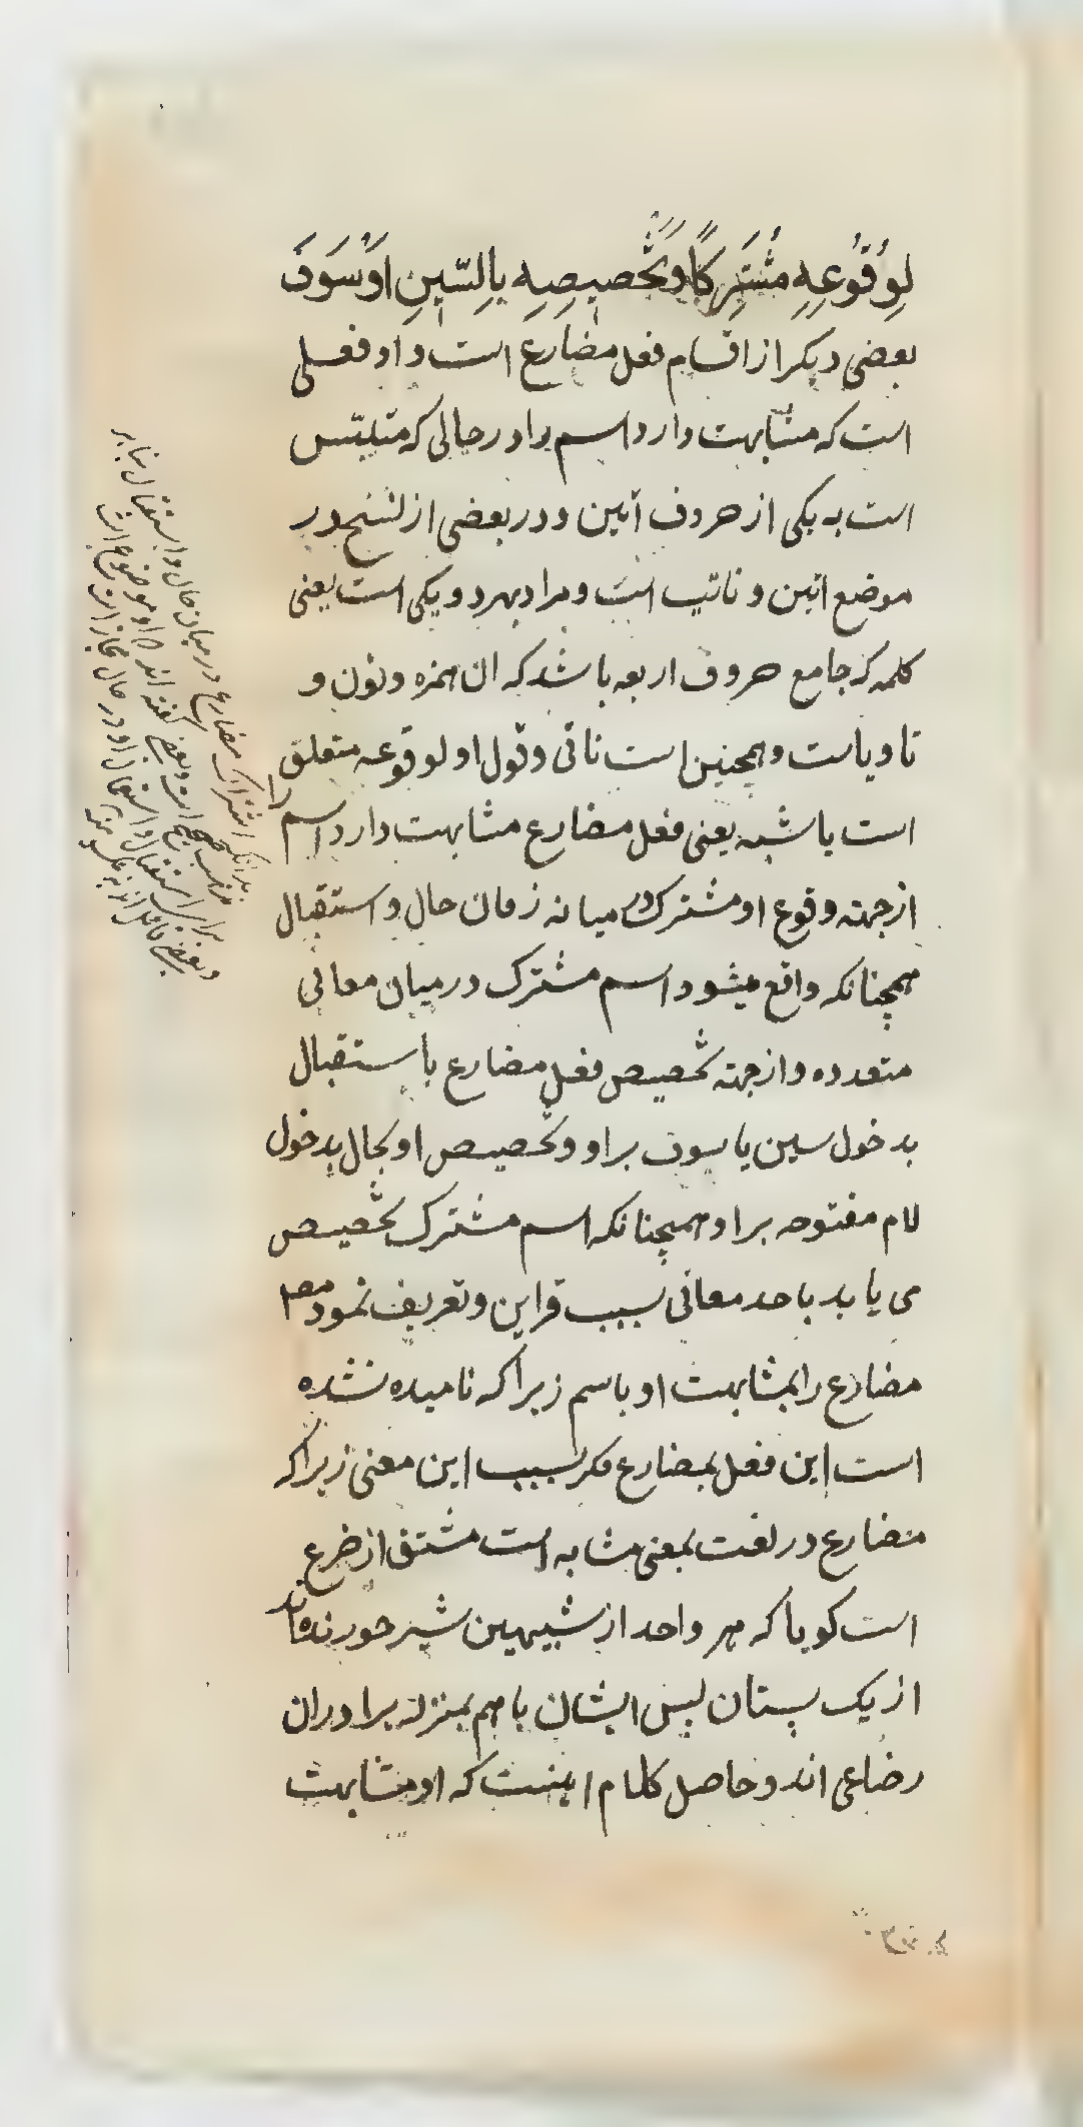 لِوُقُوعِهِ مُشْتَرِكًا وَتَخْصِيصِهِ بِالسّينِ اَوْ سَوَفَ
بعضی دیکر از اقسام فعل مضارع است و او فعلی
است که مشابهت دارد اسم را در حالی که متلبّس
است به یکی از حروف اتین و در بعضی از نسخ در
موضع اتین و ناتیب است و مراد بهر دو یکی است یعنی
کلمه که جامع حروف اربعه باشد که ان همزه و نون و
تا و یاست و همچنین است ناتی و قول او لوقوعه متعلق
است با شبه یعنی فعل مضارع مشابهت دارد اسم را
از جهته وقوع او مشترک در میانه زمان حال و استقبال
همچنانکه واقع میشود اسم مشترک در میان معانی
متعدده و از جهته تخصیص فعل مضارع باستقبال
بدخول سین یا سوف بر او و تخصیص او بحال بدخول
لام مفتوحه بر او همچنانکه اسم مشترک تخصیص
می یابد باحد معانی بسبب قراین و تعریف نمود مصـ
مضارع را بمشابهت او باسم زیرا که نامیده نشده
است این فعل بمضارع مکر بسبب این معنی زیرا که
مضارع در لغت بمعنی مشابه است مشتق از ضرع
است کویا که هر واحد از شبیهین شیر خورنده‌اند
از یک پستان پس ایشان با هم بمنزله برادران
رضاعی اند و حاصل کلام اینست که او مشابهت
بدانکه اشتراک مضارع در میان حال و استقبال بنابر
مذهب صحیح است و بعضی کفته اند که او موضوع است
برای استقبال و استعمال او در حال مجاز است
و بعضی قائل اند به عکس